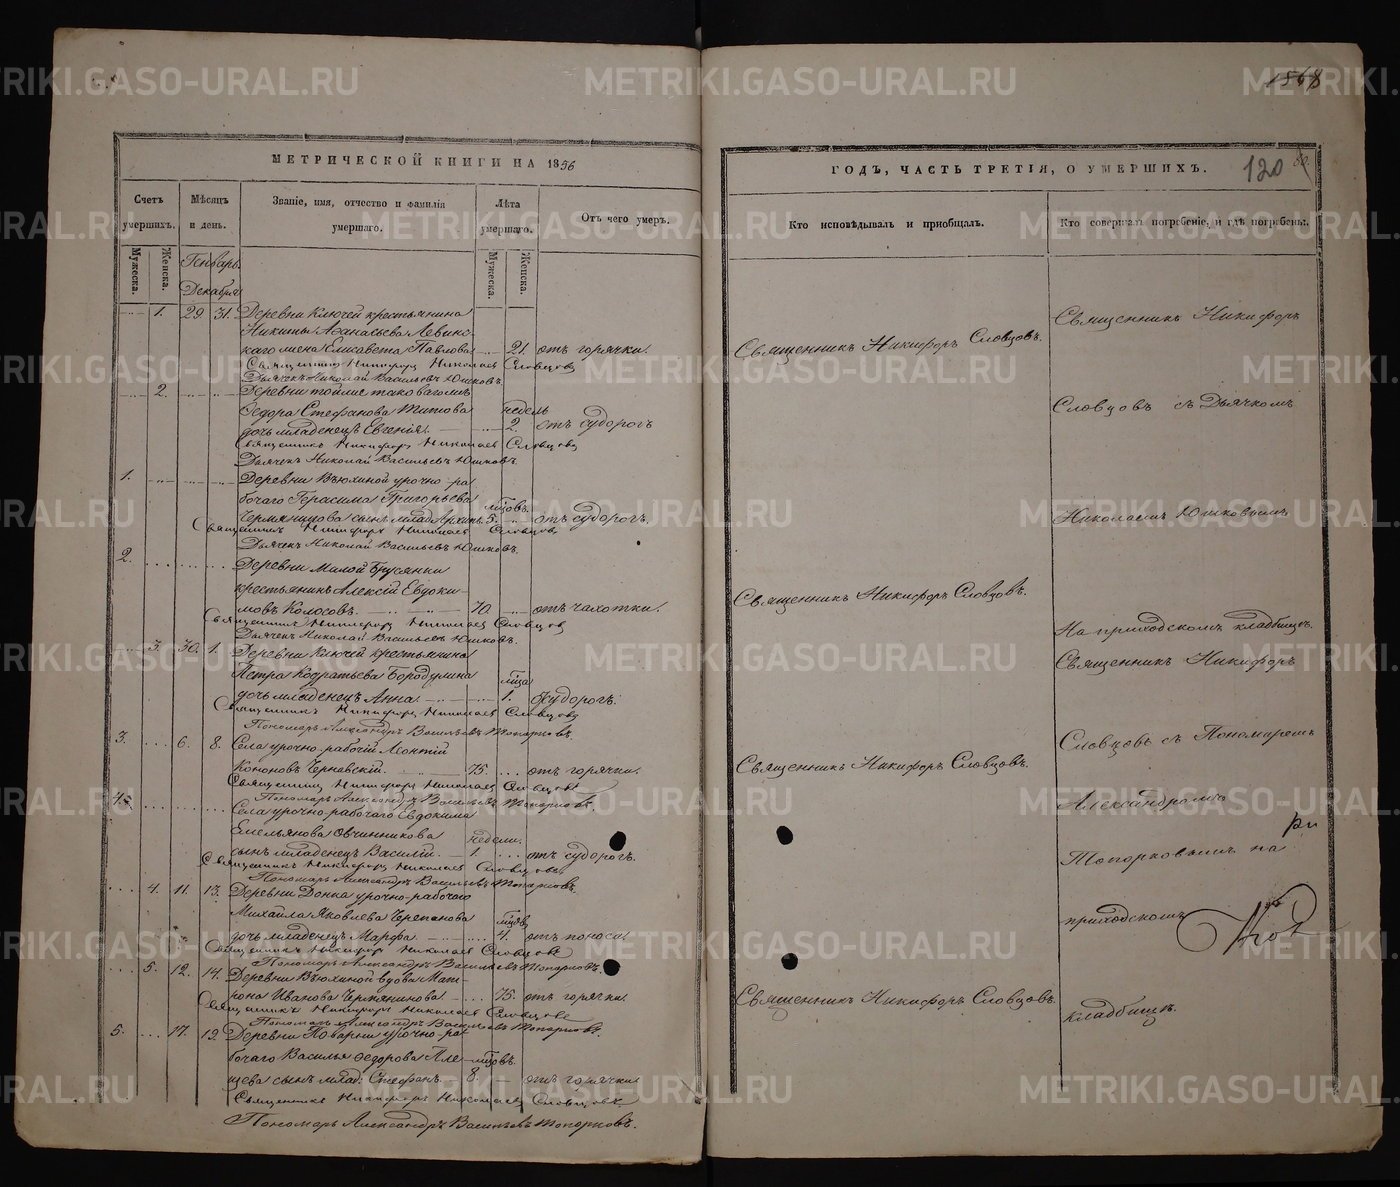 METRIKI.GASO-URAL.RU
1868
МЕТРИЧЕСКОЙ КНИГИ НА 1856
Счетъ умершихъ.
Мужеска.
Женска.
Мѣсяцъ и день.
Званіе, имя, отчество и фамилія умершаго.
Лѣта умершаго.
Мужеска.
Женска.
Отъ чего умеръ.
Генварь.
Декабря
1. 29 31. Деревни Ключей крестьянина
Никиты Аѳанасьева Левинс-
каго жена Елисавета Павлова 21. отъ горячки.
Священникъ Никифоръ Николаевъ Словцовъ
Дьячекъ Николай Васильевъ Юшковъ.
2. Деревни тойже таковагожъ
Ѳедора Стефанова Титова недѣль
дочь младенецъ Евгенія. 2. отъ судорогъ
Священникъ Никифоръ Николаевъ Словцовъ
Дьячекъ Николай Васильевъ Юшковъ.
1. Деревни Вьюхиной урочно-ра-
бочаго Герасима Григорьева мѣсяцовъ.
сынъ млад. Архипъ 5. отъ судорогъ.
Священникъ Никифоръ Николаевъ Словцовъ
Дьячекъ Николай Васильевъ Юшковъ.
2. Деревни Малой Брусянки
крестьянинъ Алексій Евдоки-
мовъ Колосовъ. 70. отъ чахотки.
Священникъ Никифоръ Николаевъ Словцовъ
Дьячекъ Николай Васильевъ Юшковъ.
3. 30. 1. Деревни Ключей крестьянина
Петра Кодратьева Бородулина мѣсяца
дочь младенецъ Анна. 1. судорогъ.
Священникъ Никифоръ Николаевъ Словцовъ
Пономарь Александръ Васильевъ Топорковъ.
3. 6. 8. Села урочно-рабочій Леонтій
Кононовъ Чернавскій. 75. отъ горячки.
Священникъ Никифоръ Николаевъ Словцовъ
Пономарь Александръ Васильевъ Топорковъ.
4. Села урочно-рабочаго Евдокима
Емельянова Овчинникова недѣли.
сынъ младенецъ Василій. 1. отъ судорогъ.
Священникъ Никифоръ Николаевъ Словцовъ
Пономарь Александръ Васильевъ Топорковъ.
4. 11. 13. Деревни урочно-рабочаго
Михаила Яковлева Черепанова
дочь младенецъ Марфа. 4. отъ поноса.
Священникъ Никифоръ Николаевъ Словцовъ
Пономарь Александръ Васильевъ Топорковъ.
5. 12. 14. Деревни Вьюхиной вдова Мат-
рона Иванова 75. отъ горячки.
Священникъ Никифоръ Николаевъ Словцовъ
Пономарь Александръ Васильевъ Топорковъ.
5. 17. 19. Деревни Поварни урочно-ра-
бочаго Василья Ѳедорова Пле-
щева сынъ млад. Стефанъ. 8. отъ горячки.
Священникъ Никифоръ Николаевъ Словцовъ.
Пономарь Александръ Васильевъ Топорковъ.
ГОДЪ, ЧАСТЬ ТРЕТІЯ, О УМЕРШИХЪ.
120
80.
Кто исповѣдывалъ и пріобщалъ.
Кто совершалъ погребеніе, и гдѣ погребены.
Священникъ Никифоръ Словцовъ.
Священникъ Никифоръ Словцовъ.
Священникъ Никифоръ Словцовъ.
Священникъ Никифоръ Словцовъ.
Священникъ Никифоръ
Словцовъ съ Дьячкомъ
Николаемъ Юшковымъ
На приходскомъ кладбищѣ.
Священникъ Никифоръ
Словцовъ съ Пономаремъ
Александромъ
Топорковымъ на
приходскомъ
кладбищѣ.